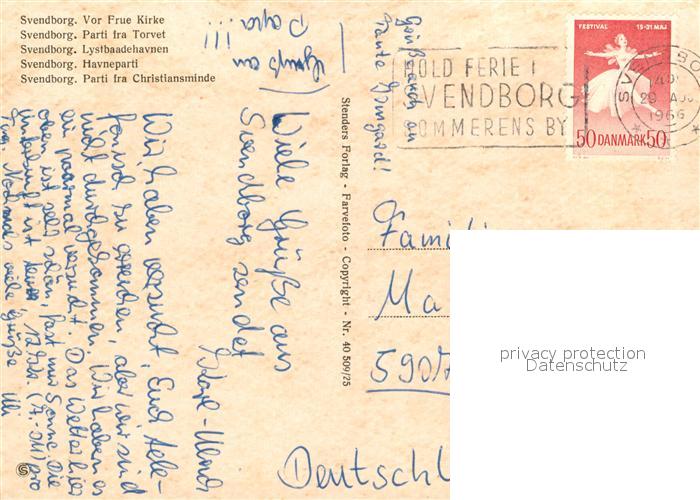 Svendborg. Vor Frue Kirke
Svendborg. Parti fra Torvet
Svendborg. Lystbaadehavnen
Svendborg. Havneparti
Svendborg. Parti fra Christiansminde
Gruß an
Papa!!!
Grüße auch an
Tante Irmgard!
Viele Grüße aus
Svendborg sendet
Wir haben versucht, Euch tele-
fonisch zu erreichen, aber wir sind
nicht durchgekommen. Wir haben es
ein paarmal versucht. Das Wetter hier
oben ist sehr schön, fast nur Sonne. Die
Unterkunft ist 12 Dkr. (7,- DM) pro
Tag. Nochmals viele Grüße Uli
Stenders Forlag - Farvefoto - Copyright - Nr. 40 509/25
FESTIVAL 15-31 MAJ
50 DANMARK 50
HOLD FERIE I
SVENDBORG
SOMMERENS BY
1966
Famil
Ma
590
Deutschl
privacy protection
Datenschutz